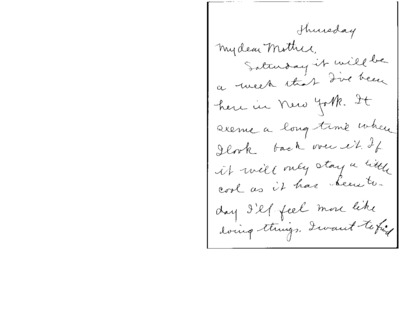 Thursday
My dear Mother,
Saturday it will be
a week that I've been
here in New York. It
seems a long time when
I look back over it. If
it will only stay a little
cool as it has been to-
day I'll feel more like
doing things. I want to find